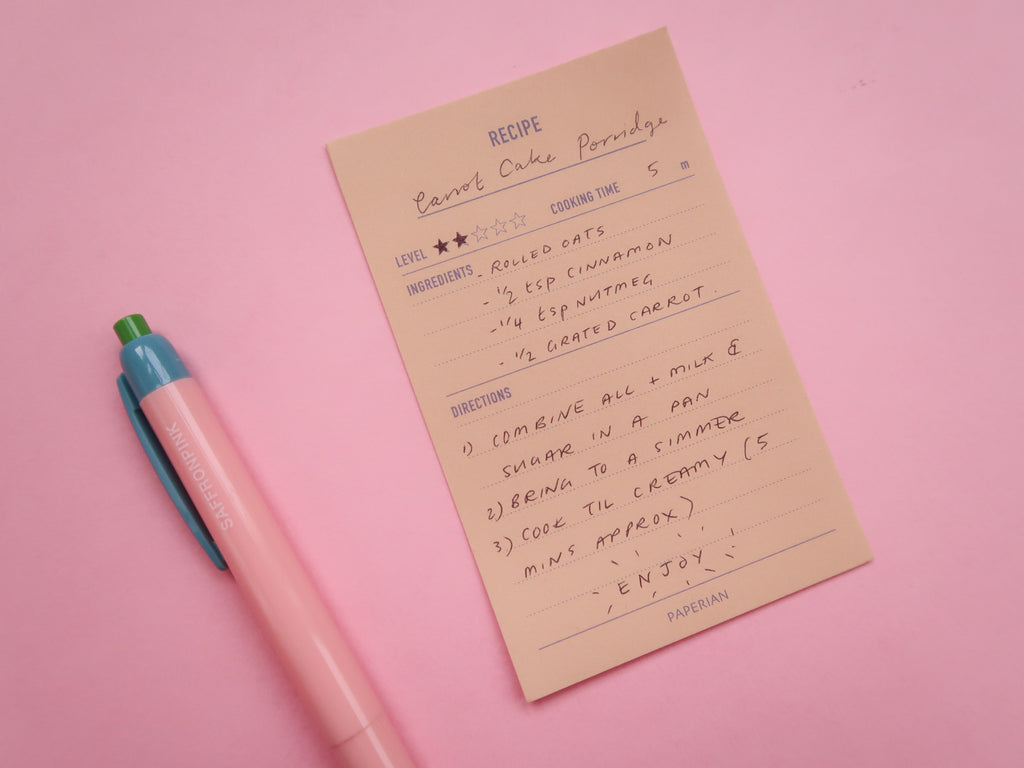 RECIPE
Carrot Cake Porridge
LEVEL ★★☆☆☆ COOKING TIME 5 m
INGREDIENTS - ROLLED OATS
- 1/2 tsp CINNAMON
- 1/4 tsp NUTMEG
- 1/2 GRATED CARROT.
DIRECTIONS
1) COMBINE ALL + MILK &
SUGAR IN A PAN
2) BRING TO A SIMMER
3) COOK TIL CREAMY (5
MINS APPROX)
ENJOY
PAPERIAN
SAFFRONPINK